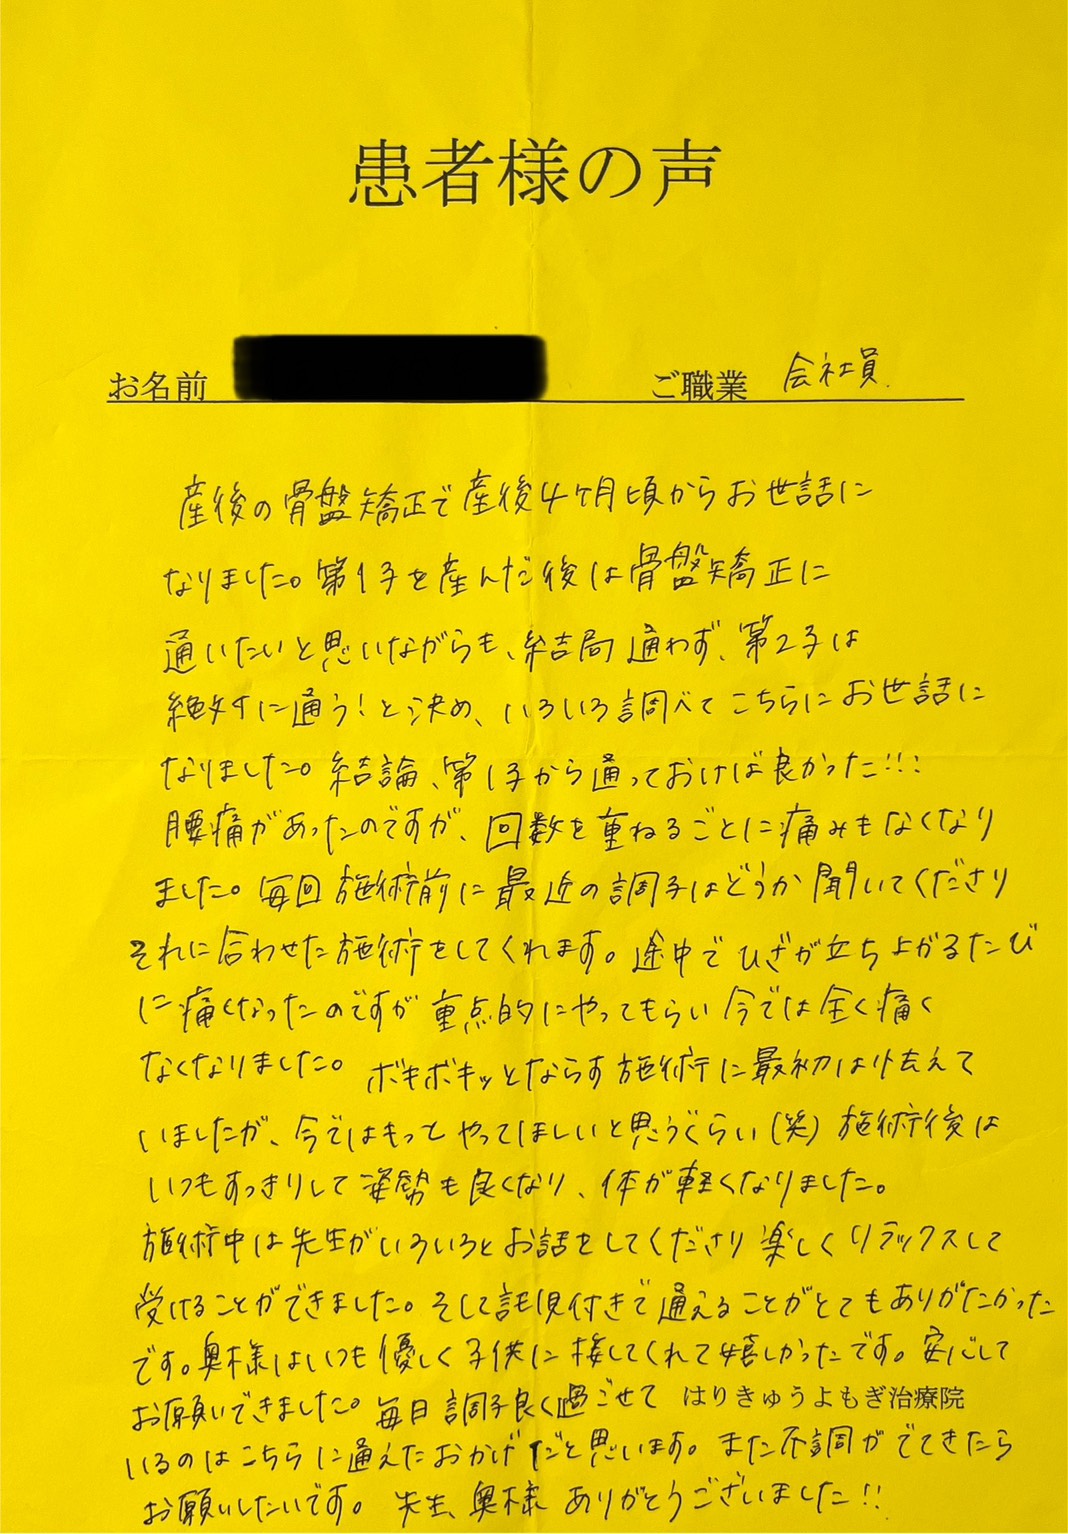 患者様の声
お名前 ご職業 会社員
産後の骨盤矯正で産後4ヶ月頃からお世話に
なりました。第1子を産んだ後は骨盤矯正に
通いたいと思いながらも、結局通わず、第2子は
絶対に通う!と決め、いろいろ調べてこちらにお世話に
なりました。結論、第1子から通っておけば良かった!!!
腰痛があったのですが、回数を重ねるごとに痛みもなくなり
ました。毎回施術前に最近の調子はどうか聞いてくださり
それに合わせた施術をしてくれます。途中でひざが立ち上がるたび
に痛くなったのですが重点的にやってもらい今では全く痛く
なくなりました。ボキボキッとならす施術に最初は怯えて
いましたが、今ではもっとやってほしいと思うぐらい(笑)施術後は
いつもすっきりして姿勢も良くなり、体が軽くなりました。
施術中は先生がいろいろとお話をしてくださり楽しくリラックスして
受けることができました。そして託児付きで通えることがとてもありがたかった
です。奥様はいつも優しく子供に接してくれて嬉しかったです。安心して
お願いできました。毎日調子良く過ごせて はりきゅうよもぎ治療院
いるのはこちらに通えたおかげだと思います。また不調がでてきたら
お願いしたいです。先生、奥様ありがとうございました!!